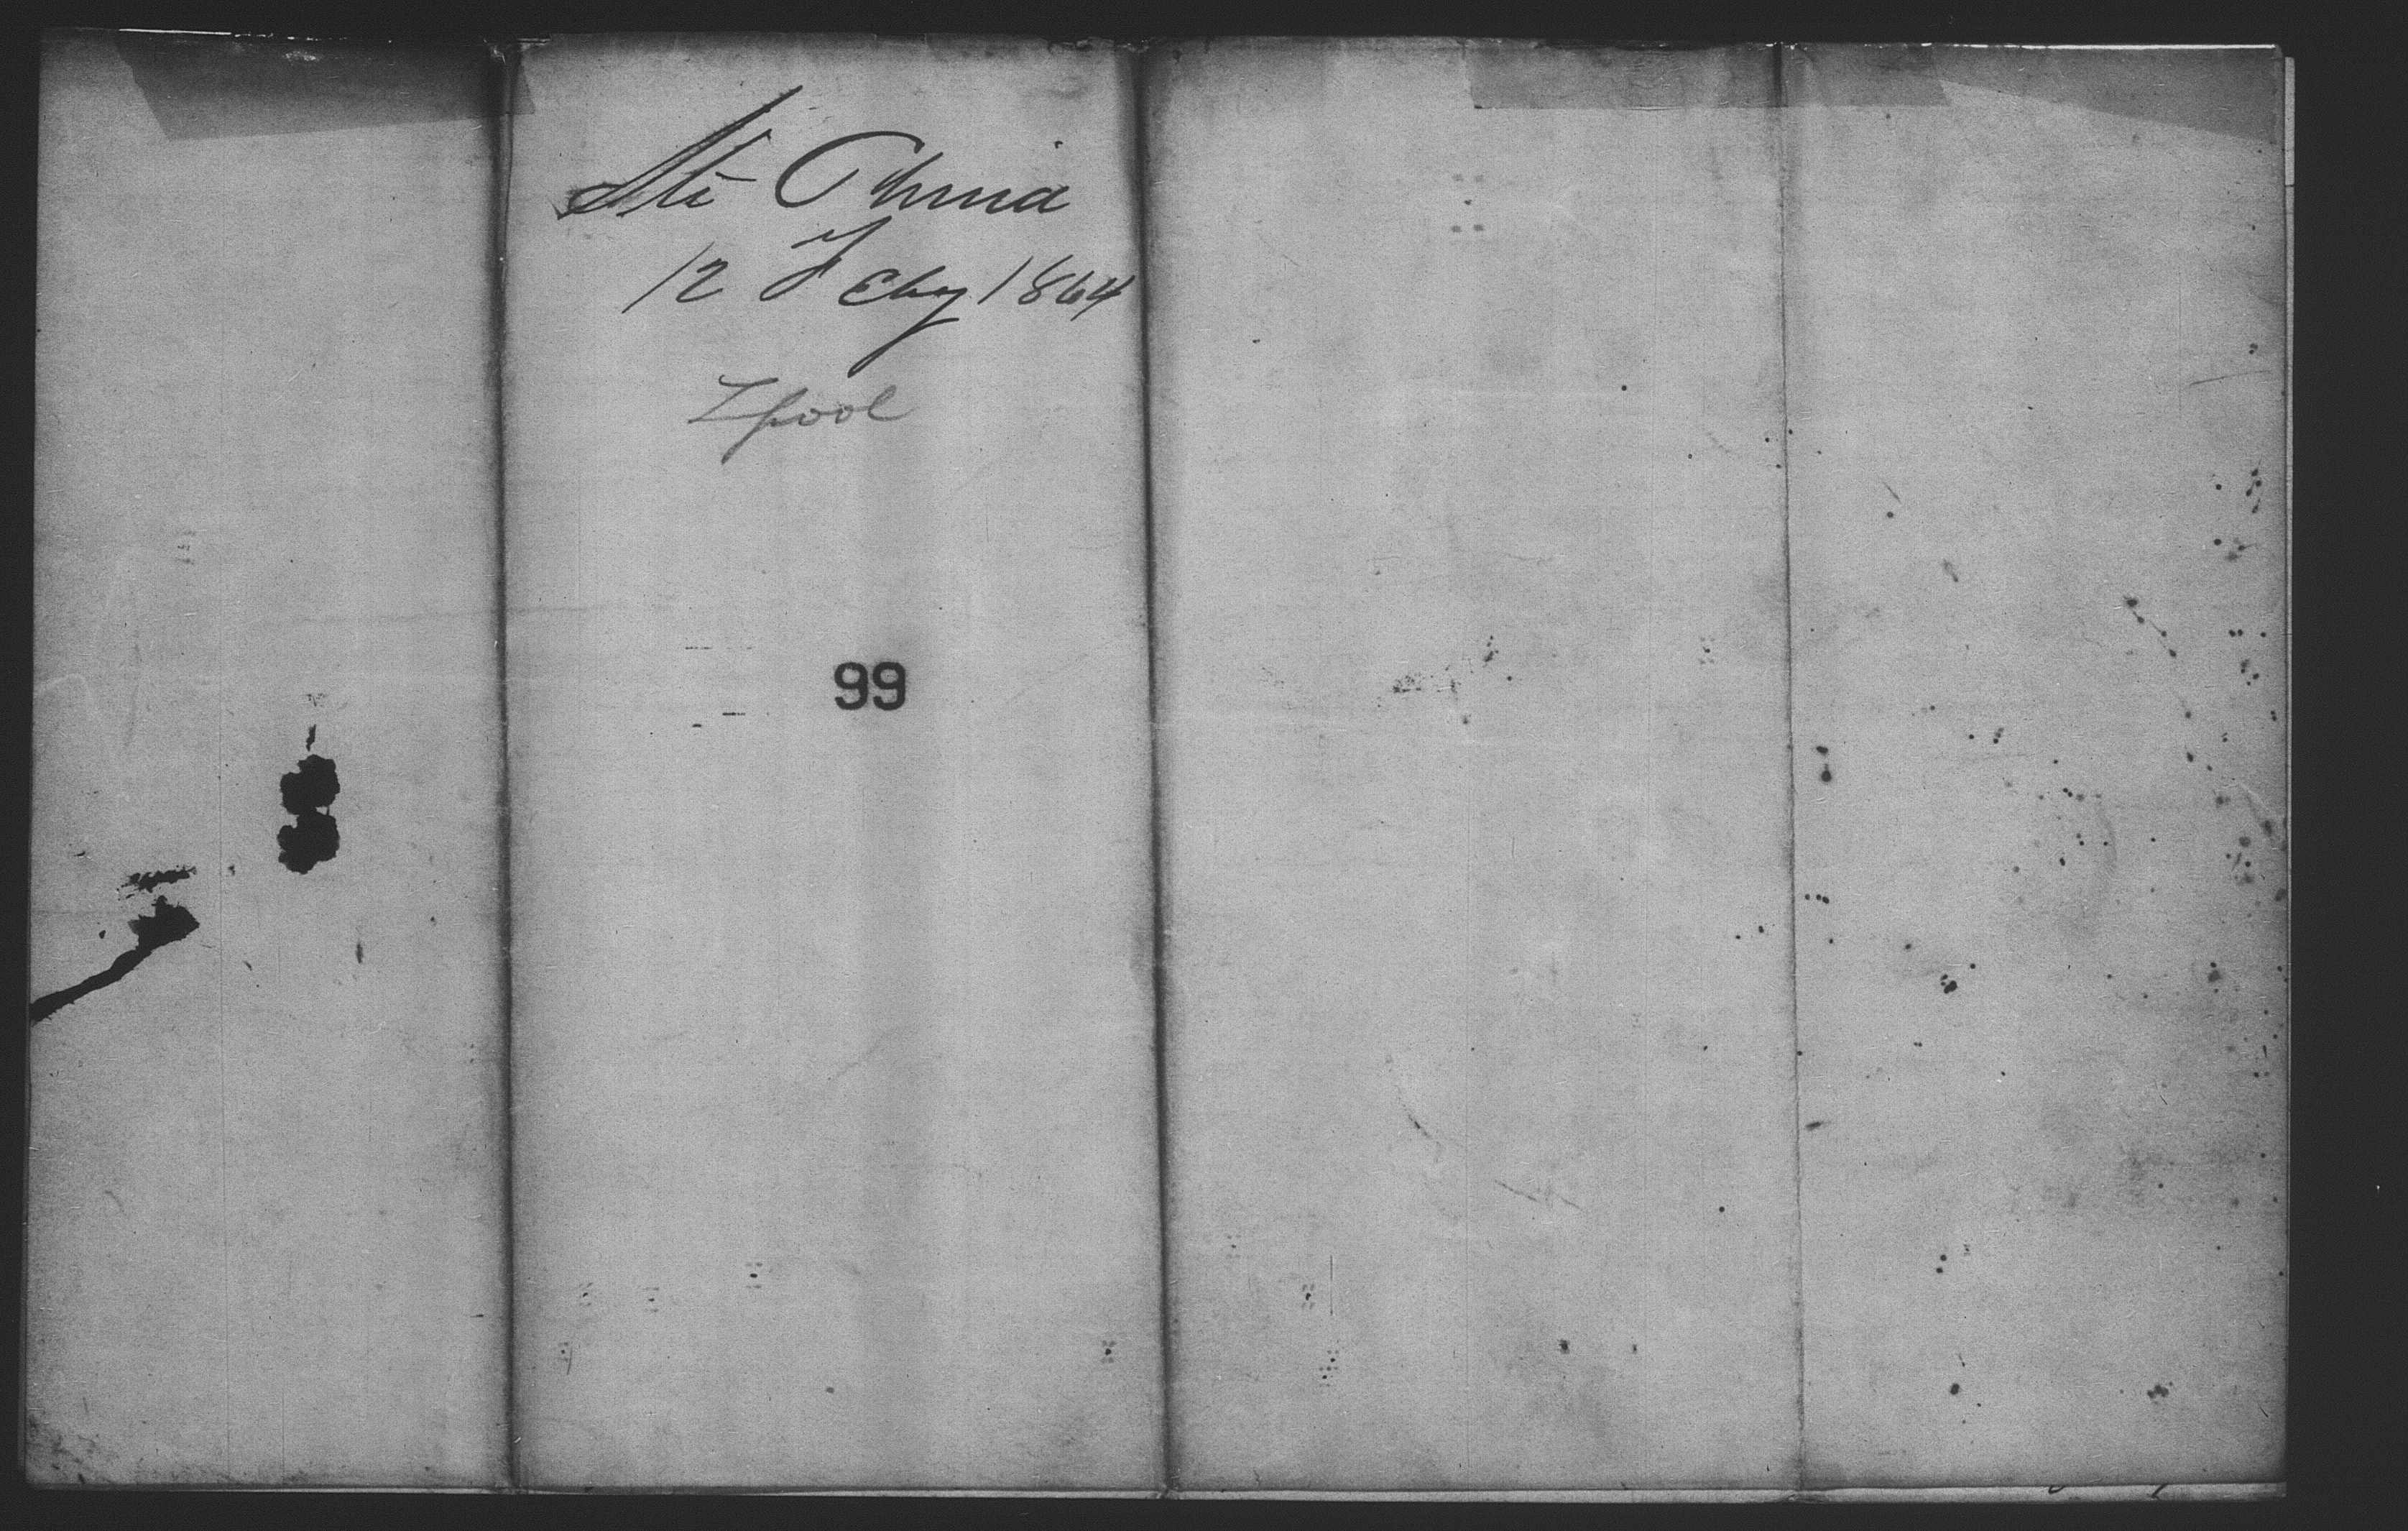 Str China
12 Feby 1864
Lpool
99